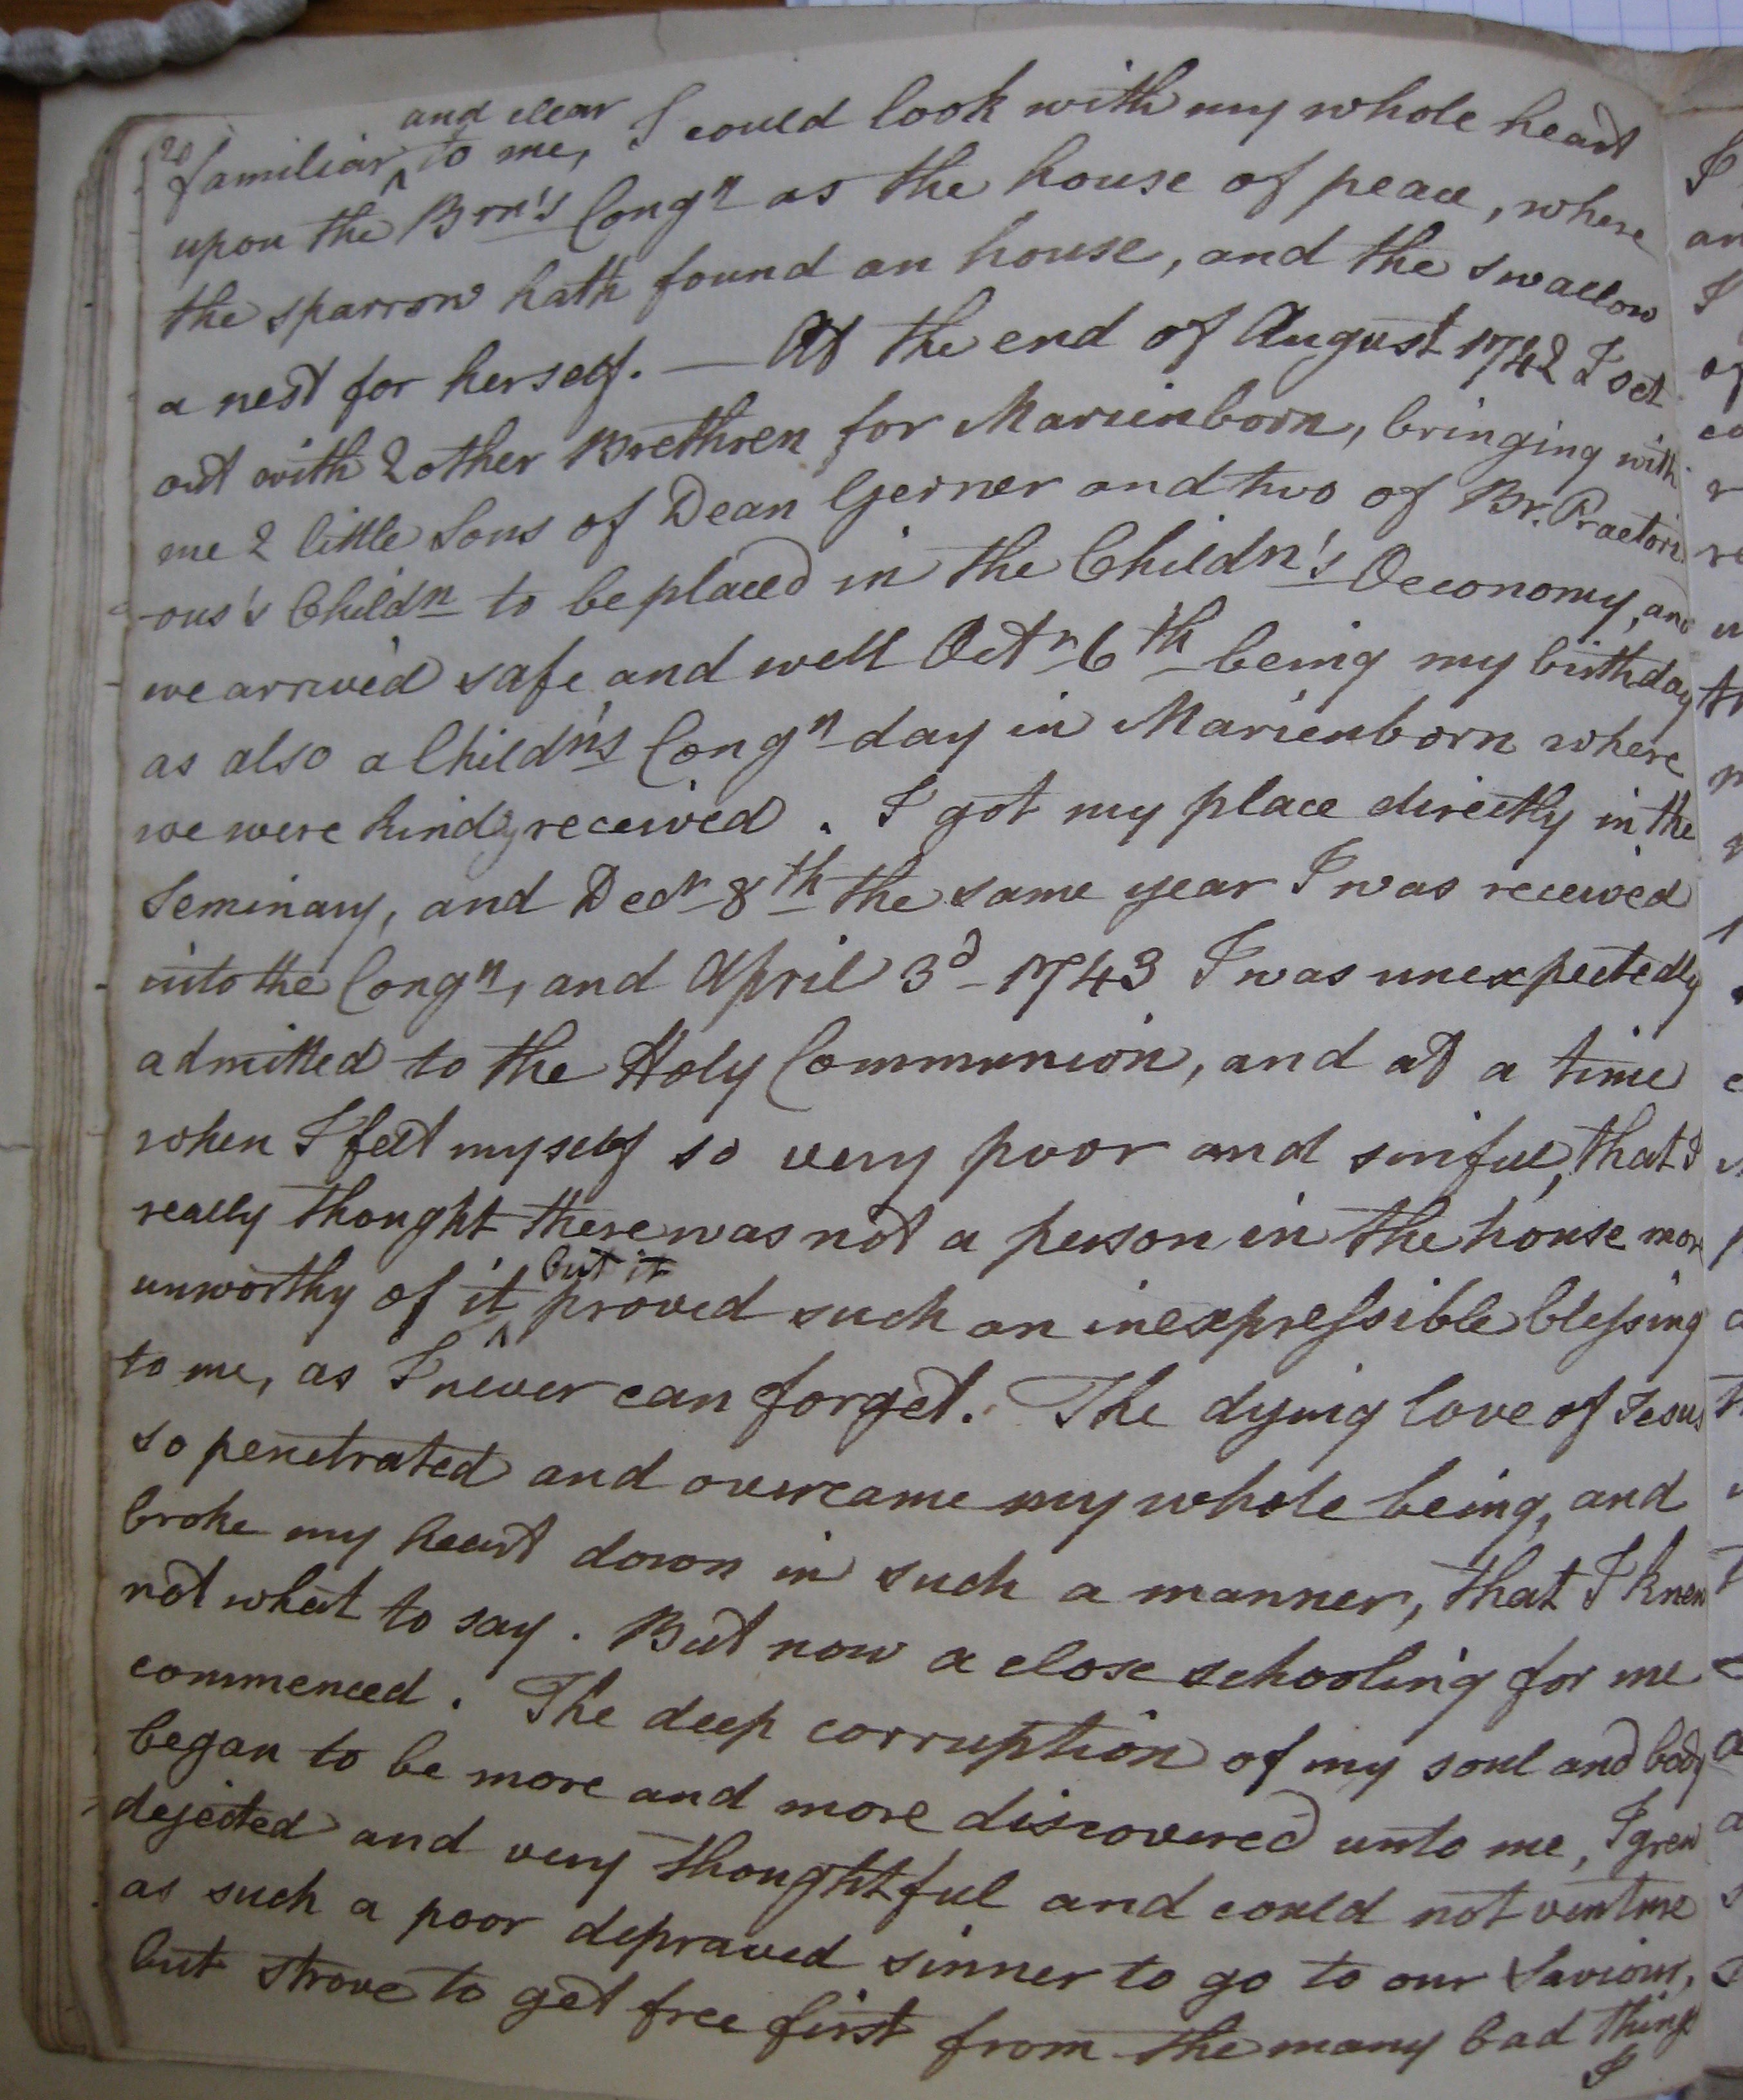 20
familiar ^and clear to me, I could look with my whole heart
upon the Brn's Congn as the house of peace, where
the sparrow hath found an house, and the swallow
a nest for herself. — At the end of August 1742 I set
out with 2 other Brethren for Marienborn, bringing with
me 2 little Sons of Dean Gerner and two of Br. Praetori
-ous's Childn to be placed in the Childn's Oeconomy, and
we arrived safe and well Octr 6th being my birthday
as also a Childn's Congn day in Marienborn where
we were kindly received. I got my place directly in the
Seminary, and Decr 8th the same year I was received
into the Congn, and April 3d 1743 I was unexpectedly
admitted to the Holy Communion, and at a time
when I felt myself so very poor and sinful, that I
really thought there was not a person in the house more
unworthy of it ^but it proved such an inexpressible blessing
to me, as I never can forget. The dying love of Jesus
so penetrated and overcame my whole being, and
broke my heart down in such a manner, that I knew
not what to say. But now a close schooling for me
commenced. The deep corruption of my soul and body
began to be more and more discovered unto me, I grew
dejected and very thoughtful and could not venture
as such a poor depraved sinner to go to our Saviour,
but strove to get free first from the many bad things
I